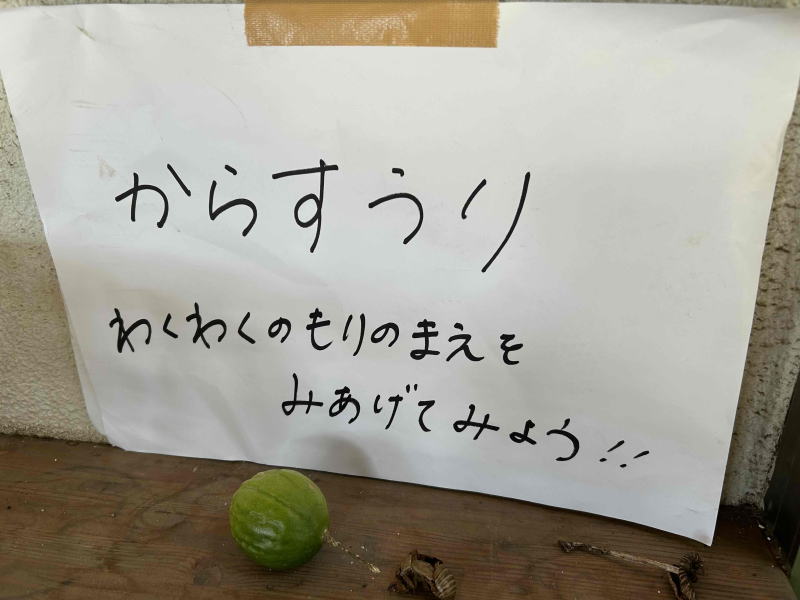 からすうり
わくわくのもりのまえを
みあげてみよう!!